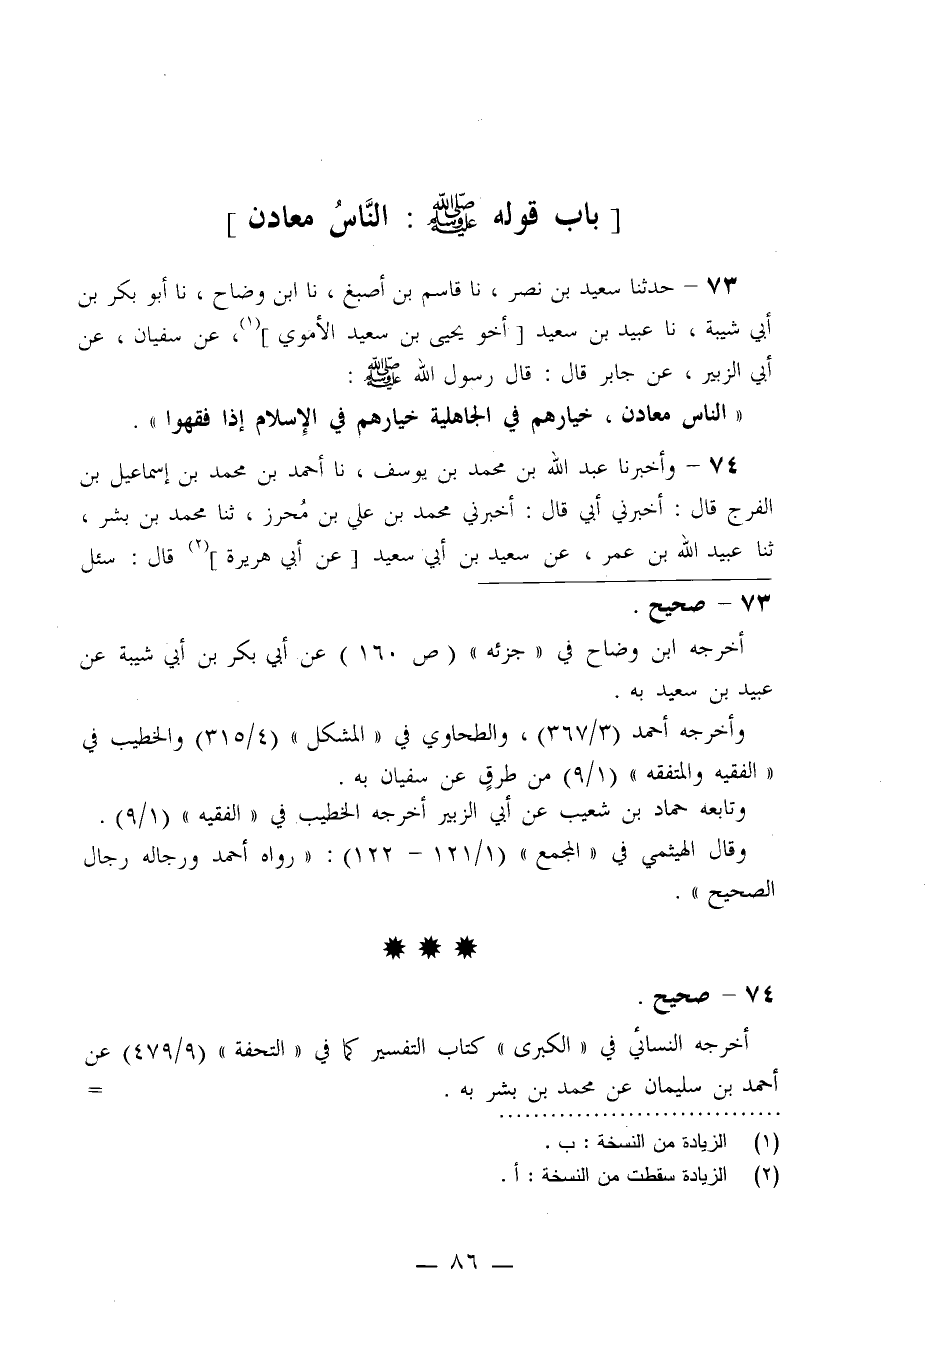 [ باب قوله ﷺ : النَّاسُ معادن ]
٧٣ – حدثنا سعيد بن نصر ، نا قاسم بن أصبغ ، نا ابن وضاح ، نا أبو بكر بن
أبي شيبة ، نا عبيد بن سعيد [ أخو يحيى بن سعيد الأموي ](١)، عن سفيان ، عن
أبي الزبير ، عن جابر قال : قال رسول الله ﷺ :
« الناس معادن ، خيارهم في الجاهلية خيارهم في الإسلام إذا فقهوا » .
٧٤ – وأخبرنا عبد الله بن محمد بن يوسف ، نا أحمد بن محمد بن إسماعيل بن
الفرج قال : أخبرني أبي قال : أخبرني محمد بن علي بن مُحرز ، ثنا محمد بن بشر ،
ثنا عبيد الله بن عمر ، عن سعيد بن أبي سعيد [ عن أبي هريرة ](٢) قال : سئل
٧٣ – صحيح .
أخرجه ابن وضاح في « جزئه » ( ص ١٦٠ ) عن أبي بكر بن أبي شيبة عن
عبيد بن سعيد به .
وأخرجه أحمد (٣٦٧/٣) ، والطحاوي في « المشكل » (٣١٥/٤) والخطيب في
« الفقيه والمتفقه » (٩/١) من طرقٍ عن سفيان به .
وتابعه حماد بن شعيب عن أبي الزبير أخرجه الخطيب في « الفقيه » (٩/١) .
وقال الهيثمي في « المجمع » (١٢١/١ – ١٢٢) : « رواه أحمد ورجاله رجال
الصحيح » .
٧٤ – صحيح .
أخرجه النسائي في « الكبرى » كتاب التفسير كما في « التحفة » (٤٧٩/٩) عن
أحمد بن سليمان عن محمد بن بشر به . =
(١) الزيادة من النسخة : ب .
(٢) الزيادة سقطت من النسخة : أ .
— ٨٦ —